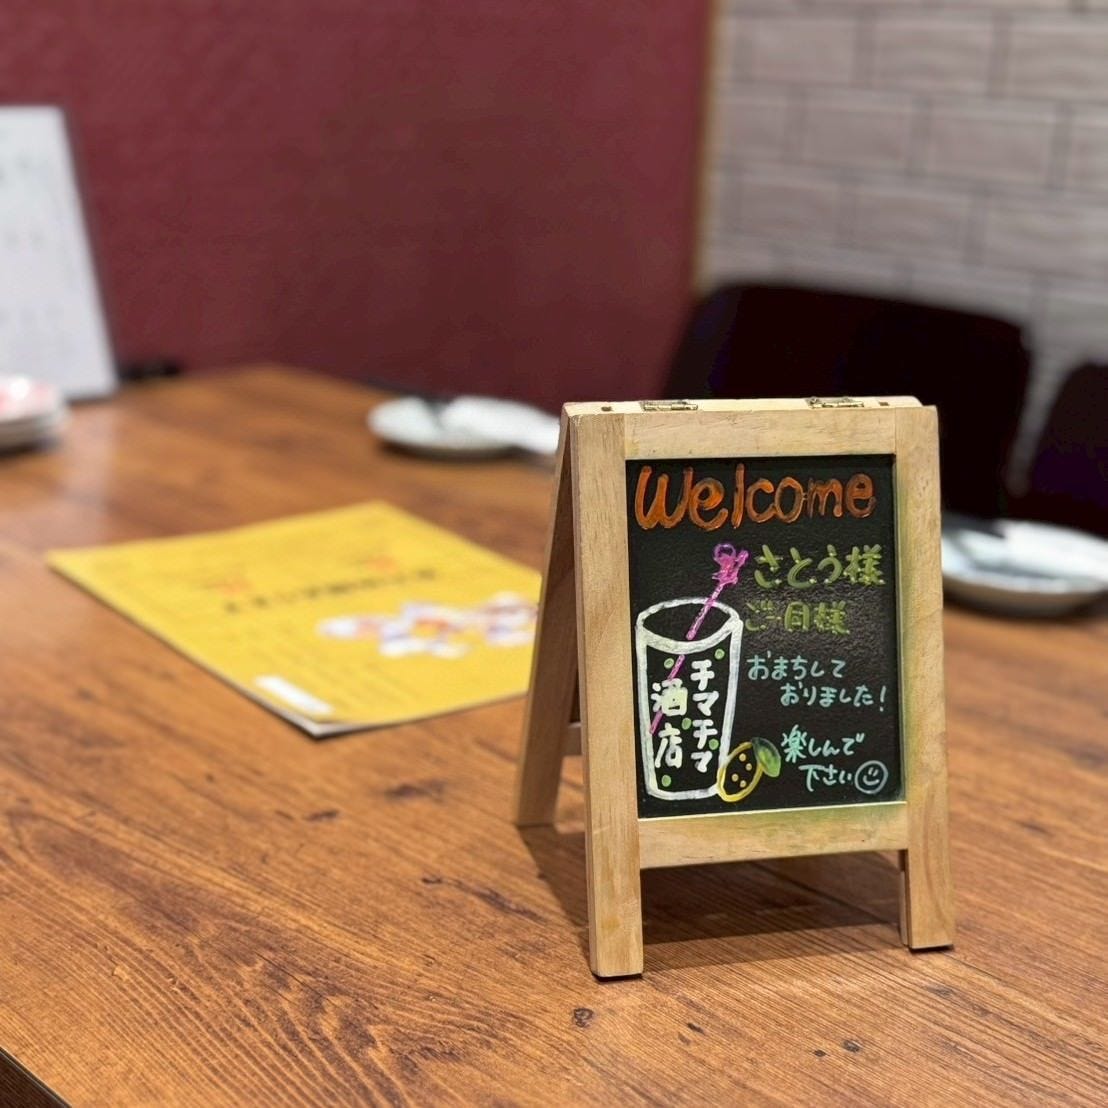 Welcome
さとう様
ご一同様
おまちして
おりました!
楽しんで
下さい
チマチマ
酒店